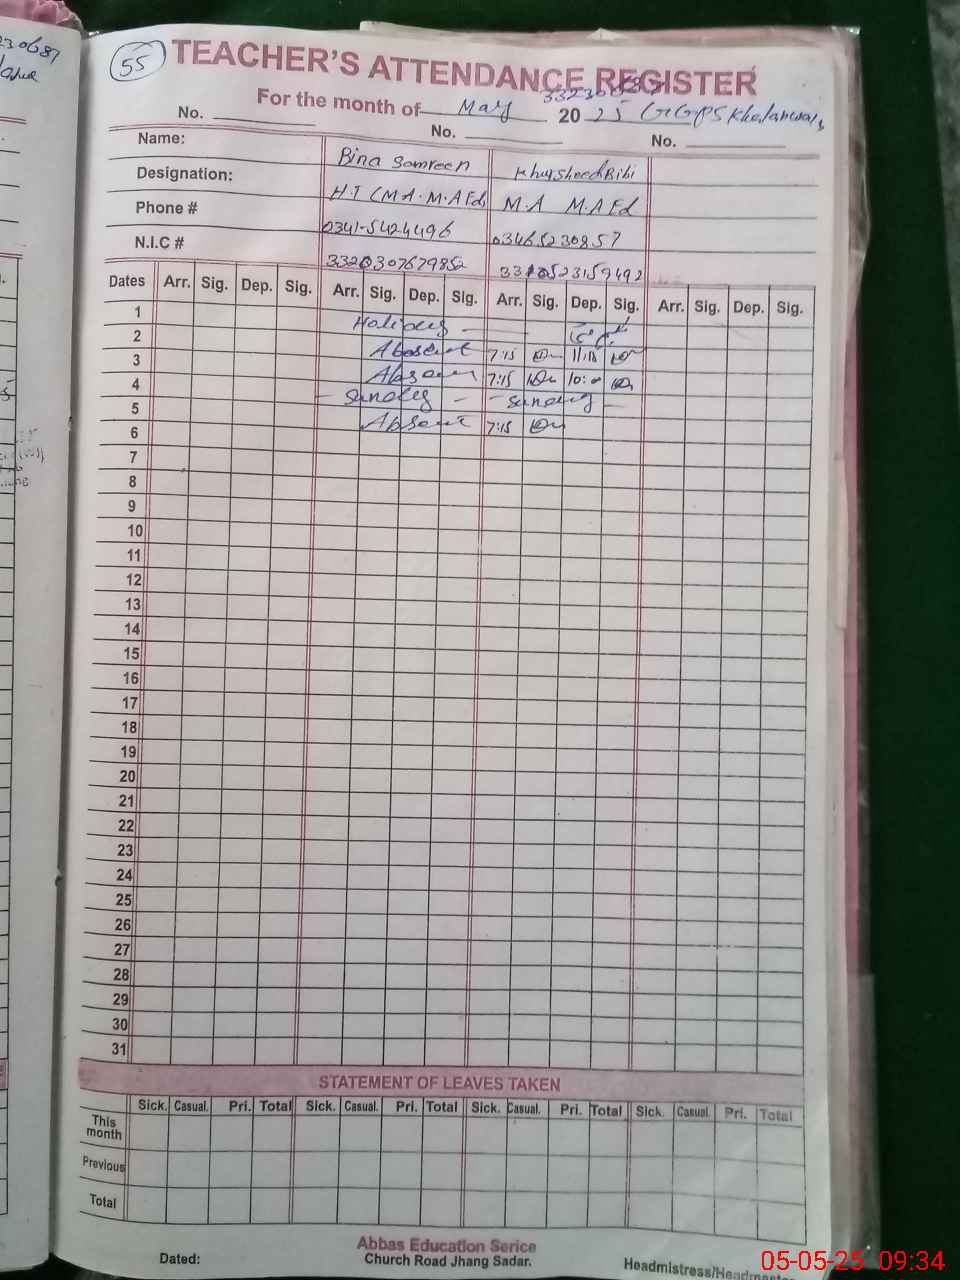 55
TEACHER'S ATTENDANCE REGISTER
For the month of May 20 25 GGPS
No. No. No.
Name: Bina Samreen Khursheed Bibi
Designation: H.T (M.A. M.A Ed) M.A M.A Ed
Phone # 0341-5424496 03465230857
N.I.C # 3320307679852
Dates Arr. Sig. Dep. Sig. Arr. Sig. Dep. Sig. Arr. Sig. Dep. Sig. Arr. Sig. Dep. Sig.
1 Holiday
2 Absent 7:15
3 Absent 7:15 10:00
4 Sunday Sunday
5 Absent 7:15
6
7
8
9
10
11
12
13
14
15
16
17
18
19
20
21
22
23
24
25
26
27
28
29
30
31
STATEMENT OF LEAVES TAKEN
Sick. Casual. Pri. Total Sick. Casual. Pri. Total Sick. Casual. Pri. Total Sick. Casual. Pri. Total
This month
Previous
Total
Abbas Education Serice
Church Road Jhang Sadar.
Dated: Headmistress/Headmaste
05-05-25 09:34